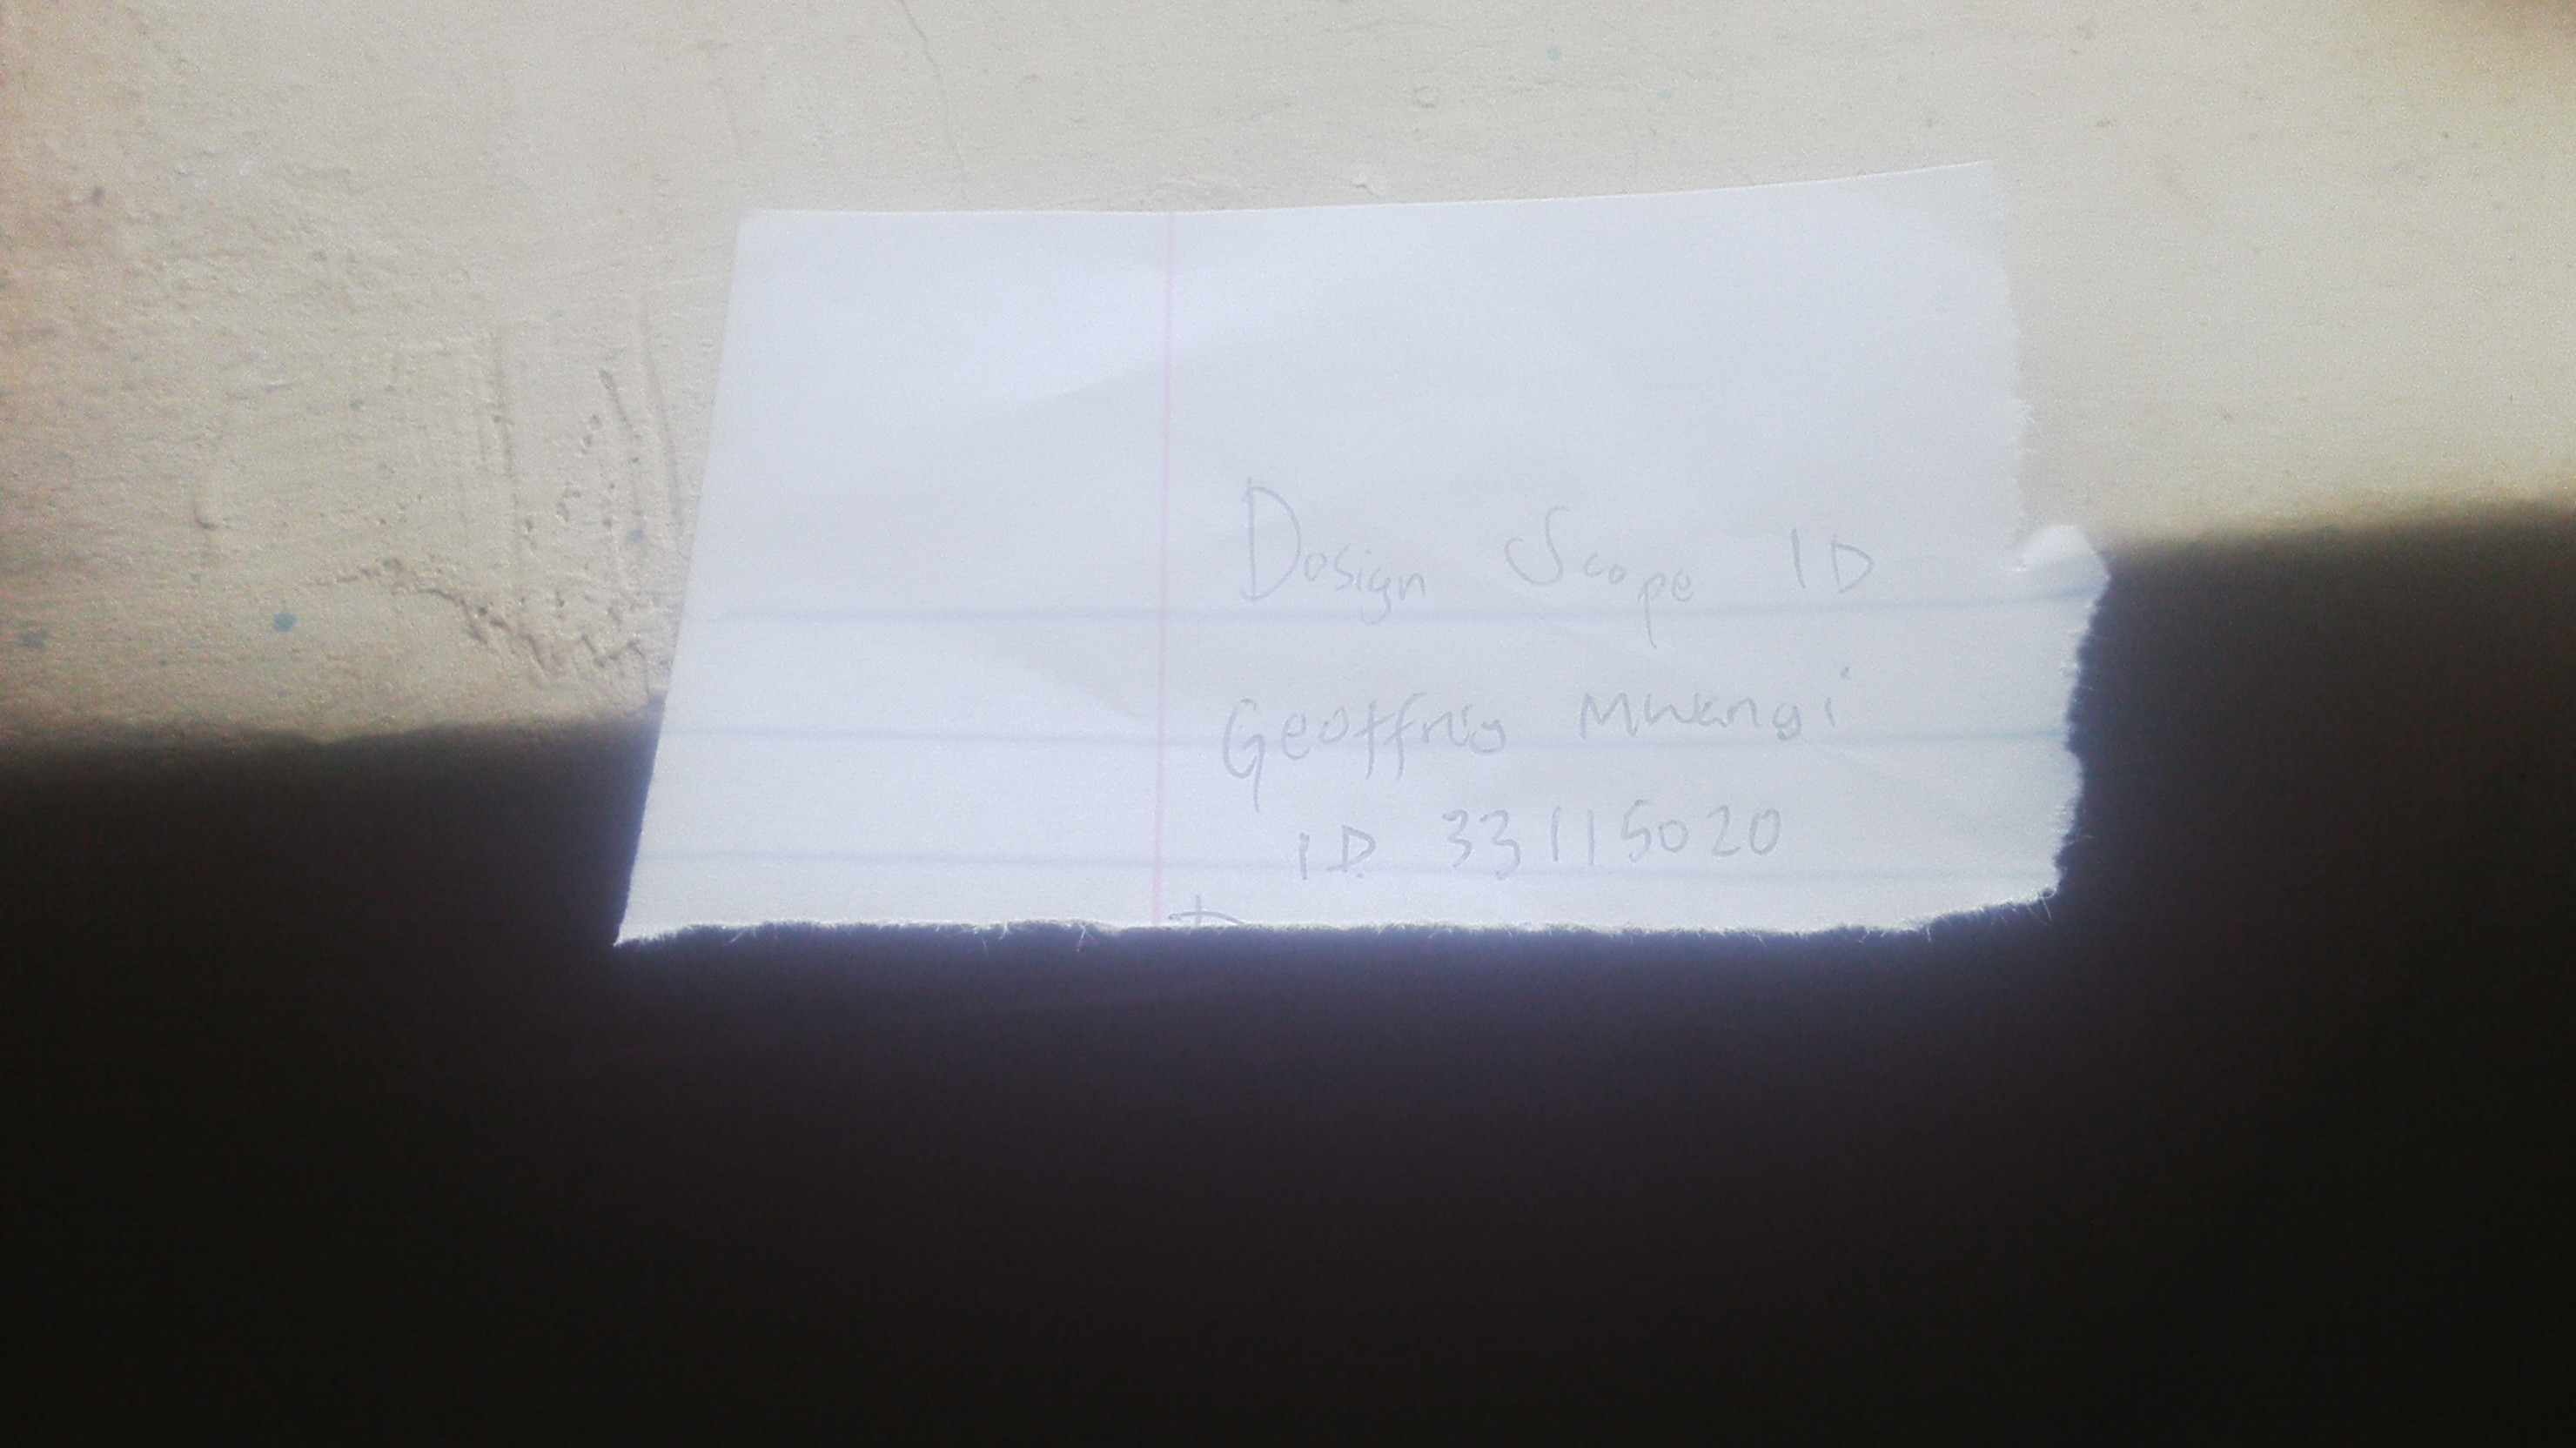 Dosign Scope ID
Geoffrey Mwangi
ID 33115020